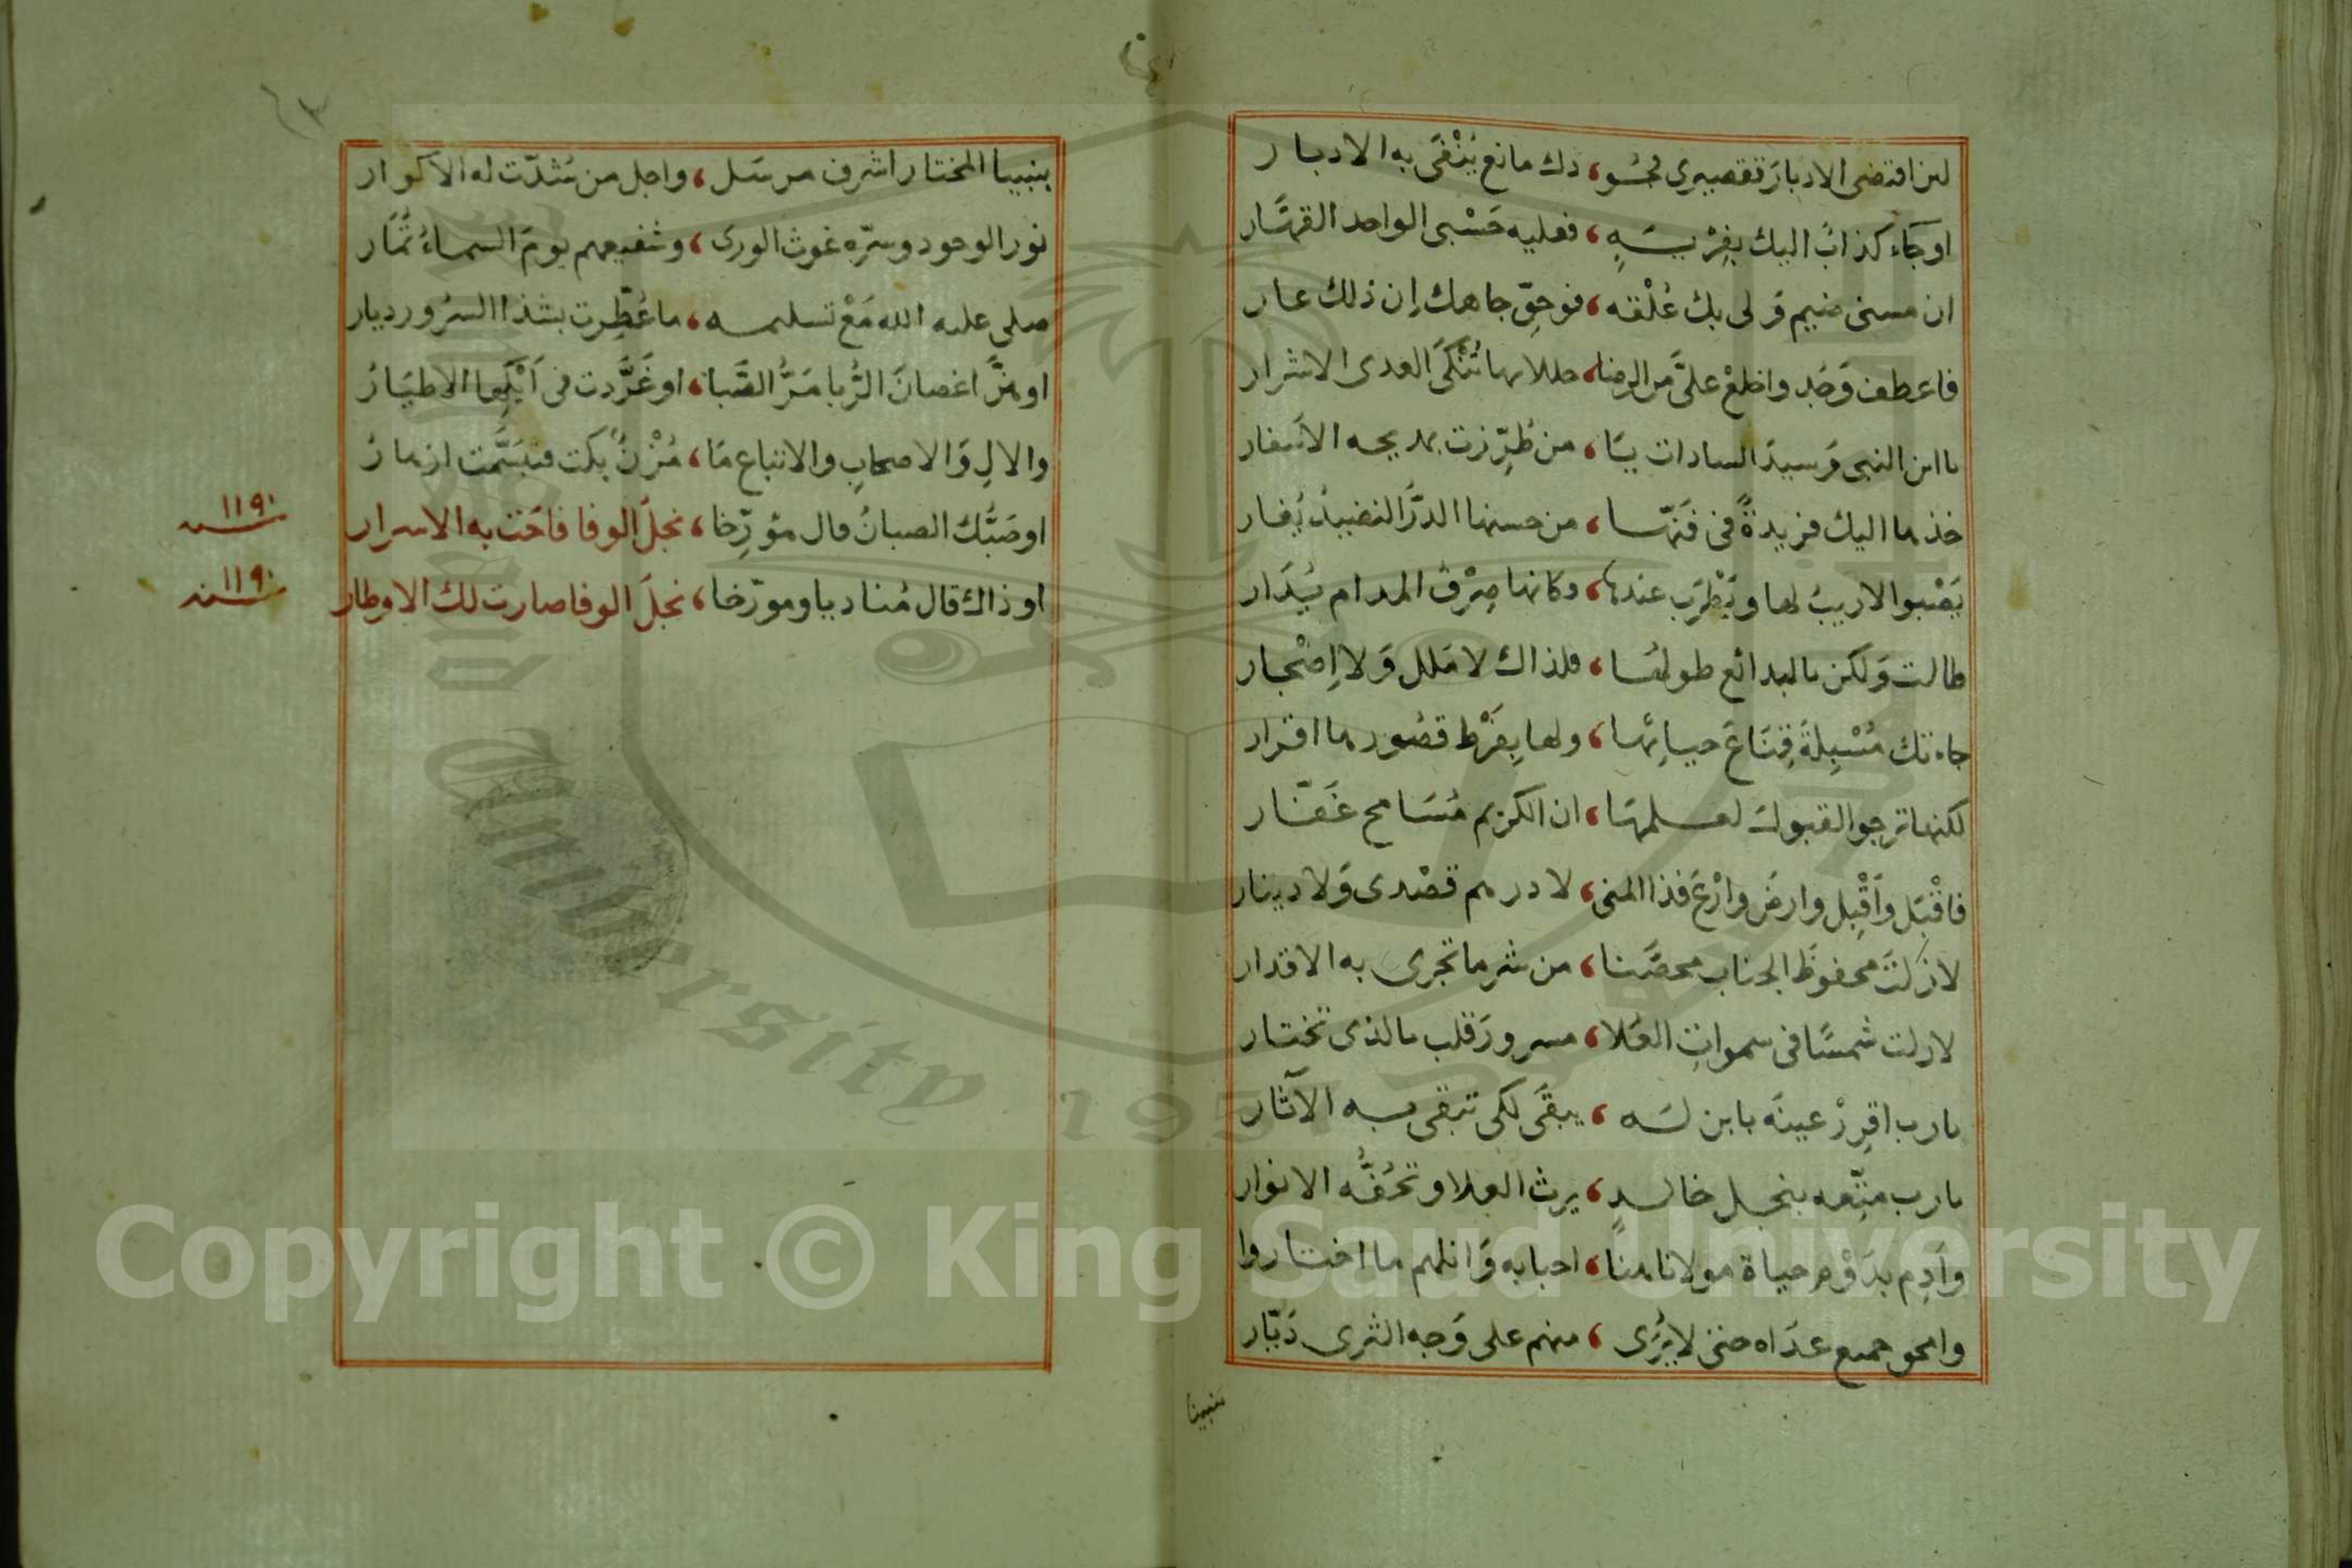 لئن اقتضى الادبارَ تقصيرى فجُو، دك مانع يُنْفَى به الادبار
او جَاء كذابٌ اليك بفِرْيَةٍ، فعليه حَسْبى الواحد القهَّار
ان مسنى ضيم وَلى بك عُلْقه، فوحقِّ جاهك اِن ذلك عار
فاعطف وَجُد واخلعْ علىَّ من الرضا، حللا بها تُنْكَى العدى الاشرار
ياابن النبى وَسيدَ السادات يَا، من طُرِّزت بمديحه الاسْفار
خذها اليك فريدةً فى فَنّها، من حسنها الدرُّ النضيدُ يُغار
يَصْبو الاريبُ لها ويَطْرَب عندها، وكانها صِرْفُ المدام يُدَار
طالت وَلكن بالبدائع طولها، فلذاك لا مَلل وَلا اِضْجار
جاءتك مُسْبِلةً قِنَاعَ حيائِها، ولها بِفَرْط قصُورها اقرار
لكنها ترجو القبولَ لعلمها، ان الكريم مُسَامح غَفَّار
فاقْبَل وَاَقْبِل وارضَ وارْعَ فذا المنى، لا درهم قصْدى وَلا دينار
لازلتَ محفوظَ الجناب محصَّنا، من شر ما تجرى به الاقدار
لازلت شمسًا فى سموات العُلا، مسرورَ قلب بالذى تختار
يارب اقرِرْ عينَه بابن لَه، يبقَى لكى تبقى به الآثار
يارب متِّعه بنجل خالدٍ، يرث العلا وتحُفُّه الانوار
وَاَدِم بدَوْم حياة مولانا هنًا، احبابه وَانلهم ما اختاروا
وامحو جميع عدَاه حتى لا يُرَى، منهم على وَجه الثرى دَيّار
بنبينا
بنبينا المختار اشرف مرسَل، واجل من شُدّت له الاكوار
نور الوجود وسرّه غوث الورى، وشفيعهم يومَ السماءُ تُمَار
صلى عليه الله مَعْ تسليمه، ما عُطِّرت بشذا السرُور ديار
او هزَّ اغصانَ الرُّبا مَرُّ الصَّبا، او غَرَّدت فى اَيْكِها الاطيَارُ
والالِ وَالاصحابِ والاتباع مَا، مُزْنٌ بكت فتبسَّمت ازهارُ
او صَبُّك الصبانُ قال مؤرِّخا، نجلَ الوفا فاحَت به الاسرار
١١٩٠ سنه
او ذاك قال مُناديا ومورّخا، نجلَ الوفا صارت لك الاوطار
١١٩٠ سنه
Copyright © King Saud University
University 1957